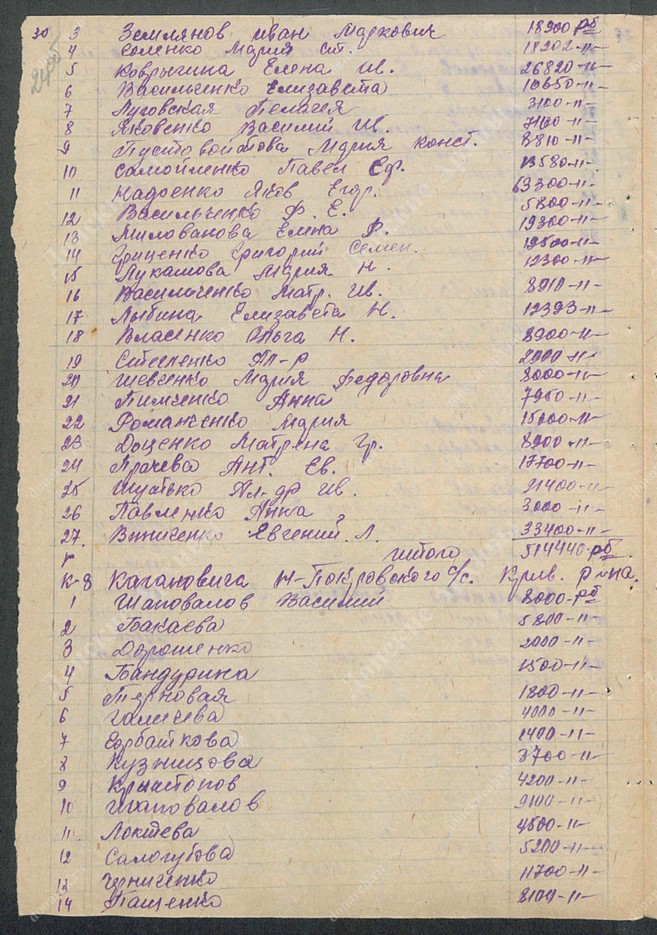 30 3 Землянов Иван Маркович 18900 рб
4 Соленко Мария Ст. 18202-11-
5 Коврыгина Елена Ив. 26820-11-
6 Васильченко Елизавета 10650-11-
7 Луговская Пелагея 3100-11-
8 Яковенко Василий Ив. 7100-11-
9 Пустовойтова Мария Конст. 8810-11-
10 Самойленко Павел Еф. 13580-11-
11 Надоенко Яков Егор. 63300-11-
12 Васильченко Ф. Е. 5800-11-
13 Милованова Елена Ф. 19300-11-
14 Гриценко Григорий Семен. 19500-11-
15 Лукашова Мария Н. 12300-11-
16 Васильченко Матр. Ив. 8910-11-
17 Лыбина Елизавета Н. 12393-11-
18 Власенко Ольга Н. 8900-11-
19 Ал-р 2000-11-
20 Шевченко Мария Федоровна 8000-11-
21 Пимченко Анна 7950-11-
22 Романченко Мария 15000-11-
23 Доценко Матрена Гр. 8900-11-
24 Ант. Ев. 17700-11-
25 Шутько Ал-др Ив. 21400-11-
26 Павленко Анна 3000-11-
27 Винниченко Евгений Л. 33400-11-
Итого 514440 рб
К-з Кагановича Н-Покровского с/с. Крив. р-на.
1 Шаповалов Василий 8000-рб
2 Бакаева 5800-11-
3 Дорошенко 2000-11-
4 Бандурина 1500-11-
5 Терновая 1800-11-
6 Галичева 4000-11-
7 Горбаткова 1400-11-
8 Кузнецова 3700-11-
9 4200-11-
10 Шаповалов 9100-11-
11 Локтева 4500-11-
12 Салогубова 5200-11-
13 Черниченко 11700-11-
14 Пащенко 8100-11-